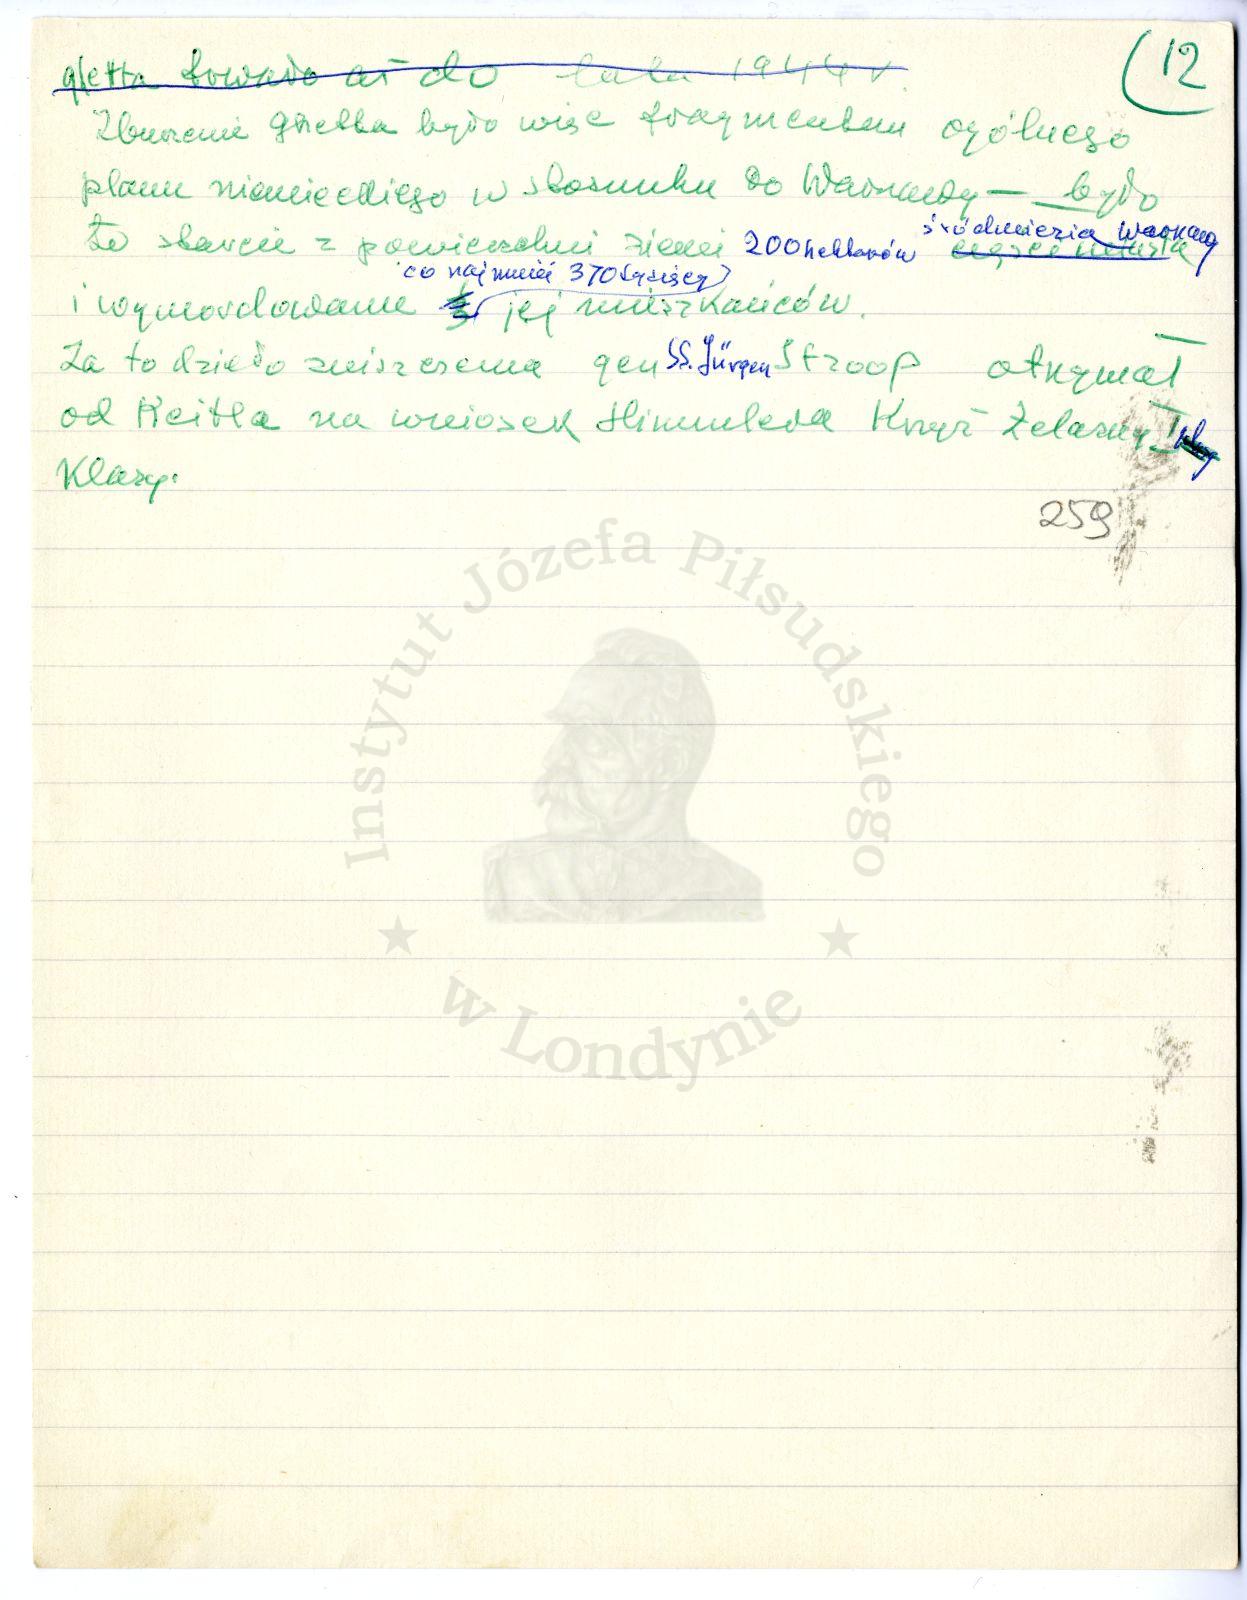 12
ghetta trwało aż do lata 1944 r.
Zburzenie ghetta było więc fragmentem ogólnego
planu niemieckiego w stosunku do Warszawy — było
śródmieścia Warszawy
to starcie z powierzchni ziemi 200 hektarów części miasta
co najmniej 370 tysięcy
i wymordowanie jej mieszkańców.
Za to dzieło zniszczenia gen SS. Jürgen Stroop otrzymał
od Keitla na wniosek Himmlera Krzyż Żelazny I
Klasy.
259
Instytut Józefa Piłsudskiego
w Londynie